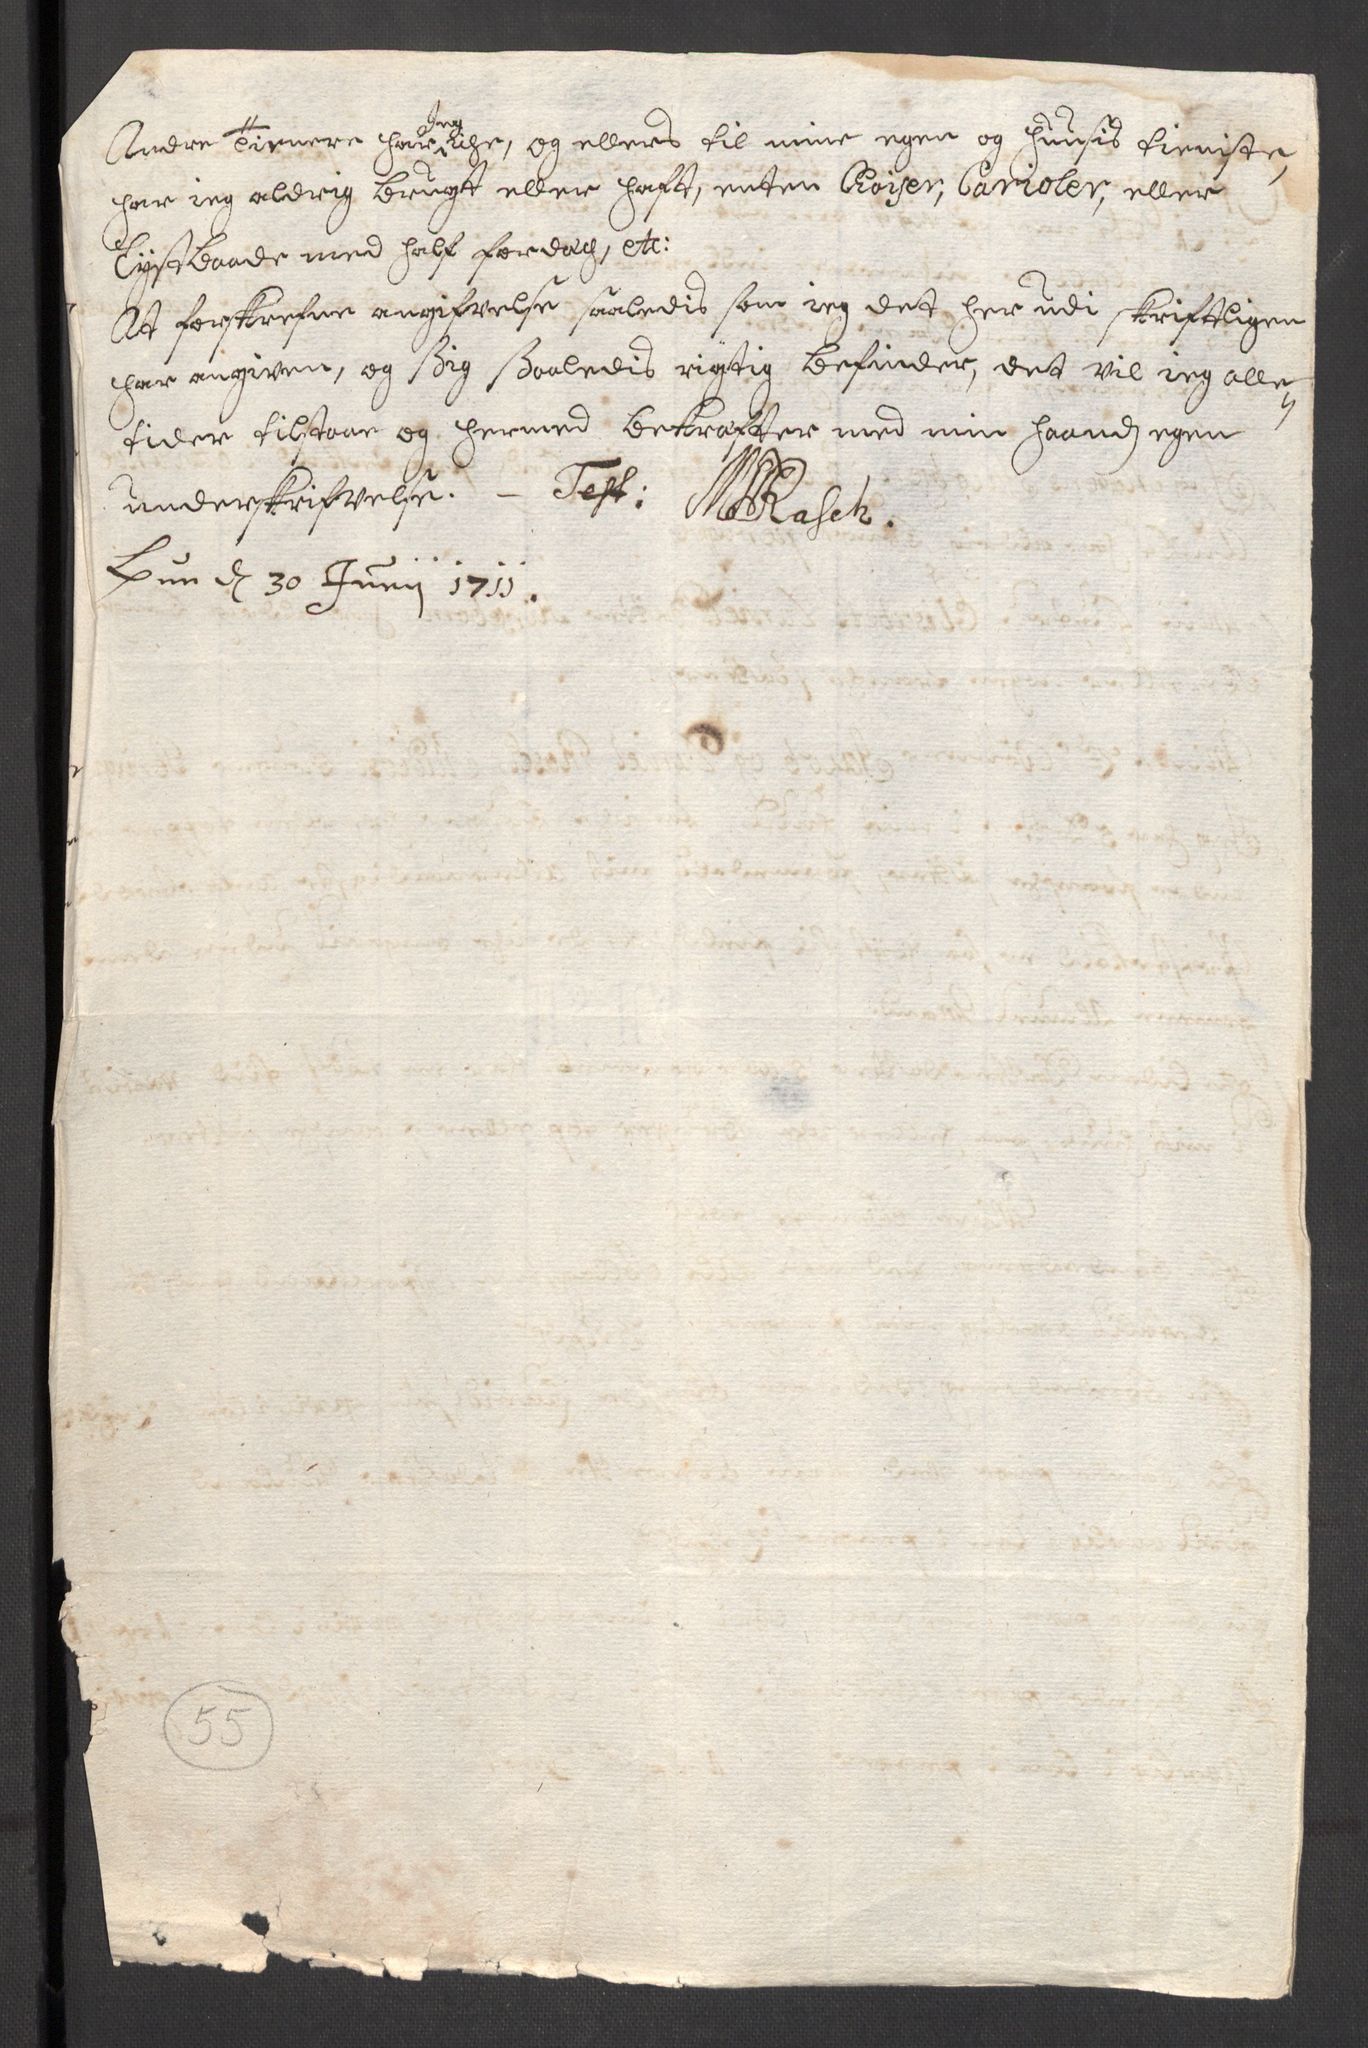 Andre Tienere har Jeg iche, og ellers til mine egen og huusis tieniste,
har ieg aldrig brugt eller haft, enten Chaiser, Carioler, eller
Lystbaade med half fordæch, etc:
At forskrefne angifvelse saaledis som ieg det her udi skriftligen
har angiven, og Sig Saaledis rigtig befinder, det vil ieg alle
tider tilstaae og hermed bekræfter med min haand egen
underskrifvelse. – Test: Rasch.
d 30 Junij 1711.
55